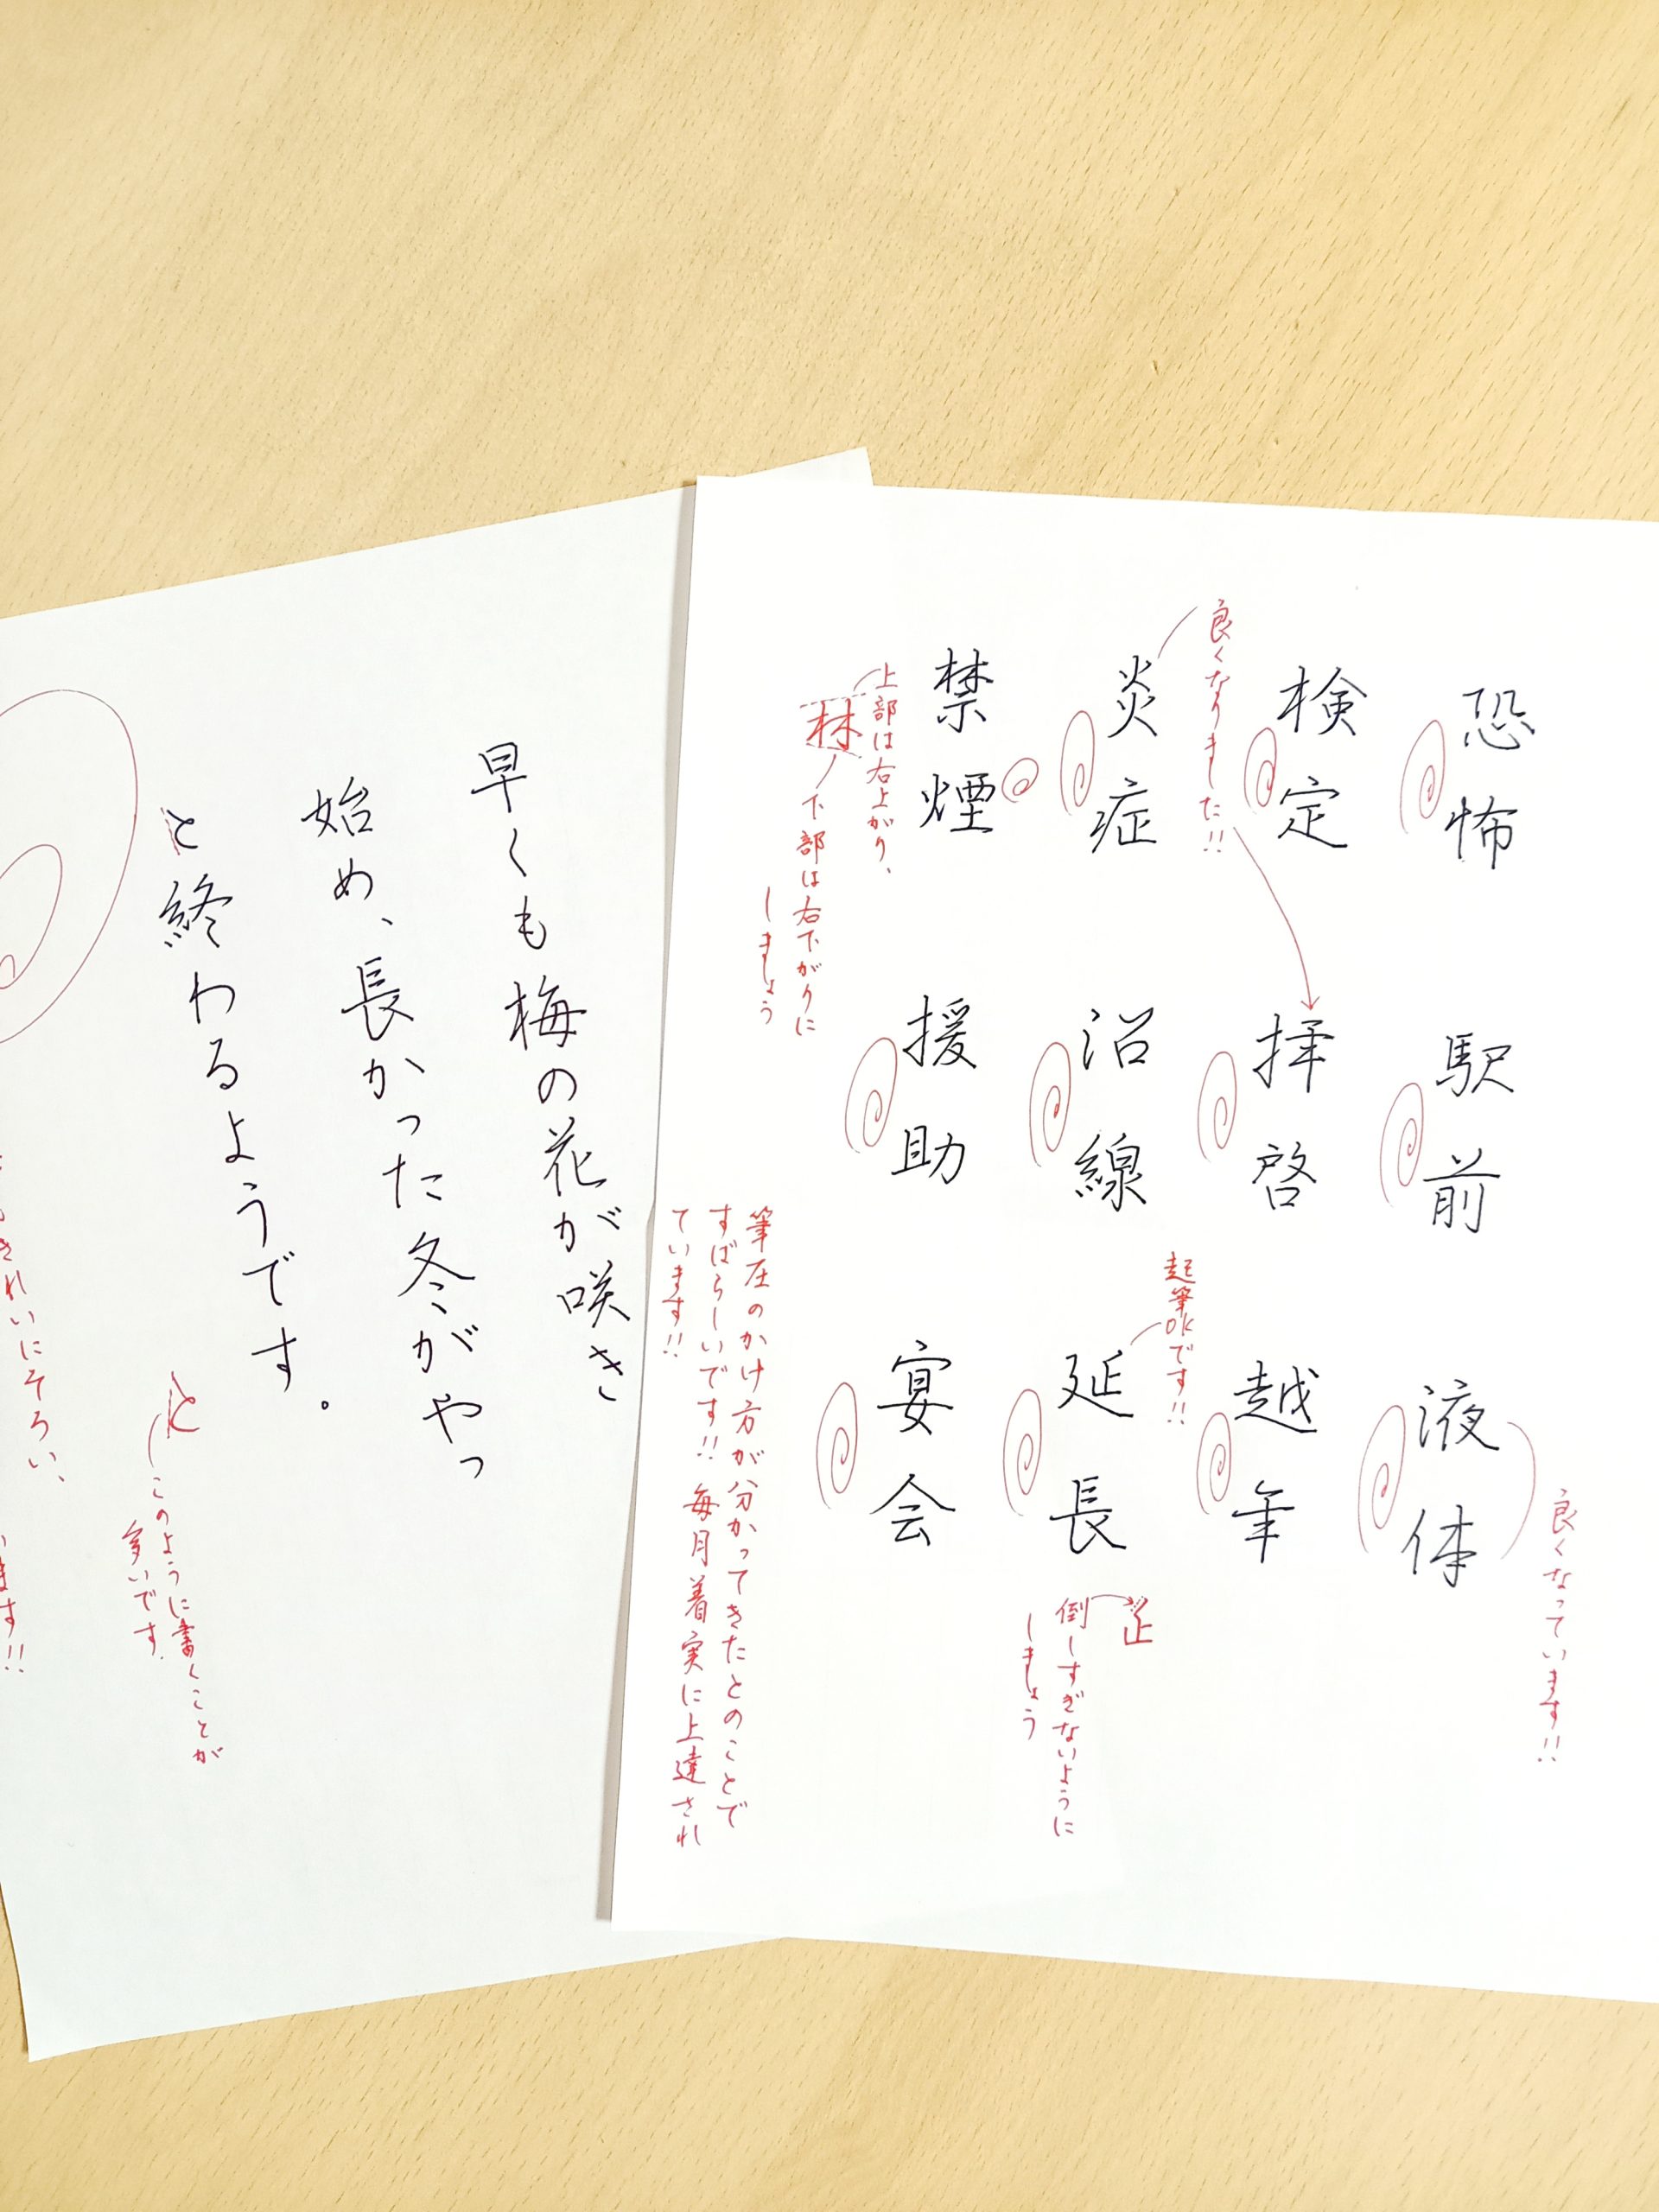 恐怖
駅前
液体
良くなっています!!
検定
拝啓
越年
良くなりました!!
炎症
沿線
延長
起筆OKです!!
止
倒しすぎないように
しましょう
禁煙
援助
宴会
上部は右上がり、
林
下部は右下がりに
しましょう
筆圧のかけ方が分かってきたとのことで
すばらしいです!! 毎月着実に上達され
ています!!
早くも梅の花が咲き
始め、長かった冬がやっ
と終わるようです。
と
このように書くことが
多いです。
きれいにそろい、
ます!!